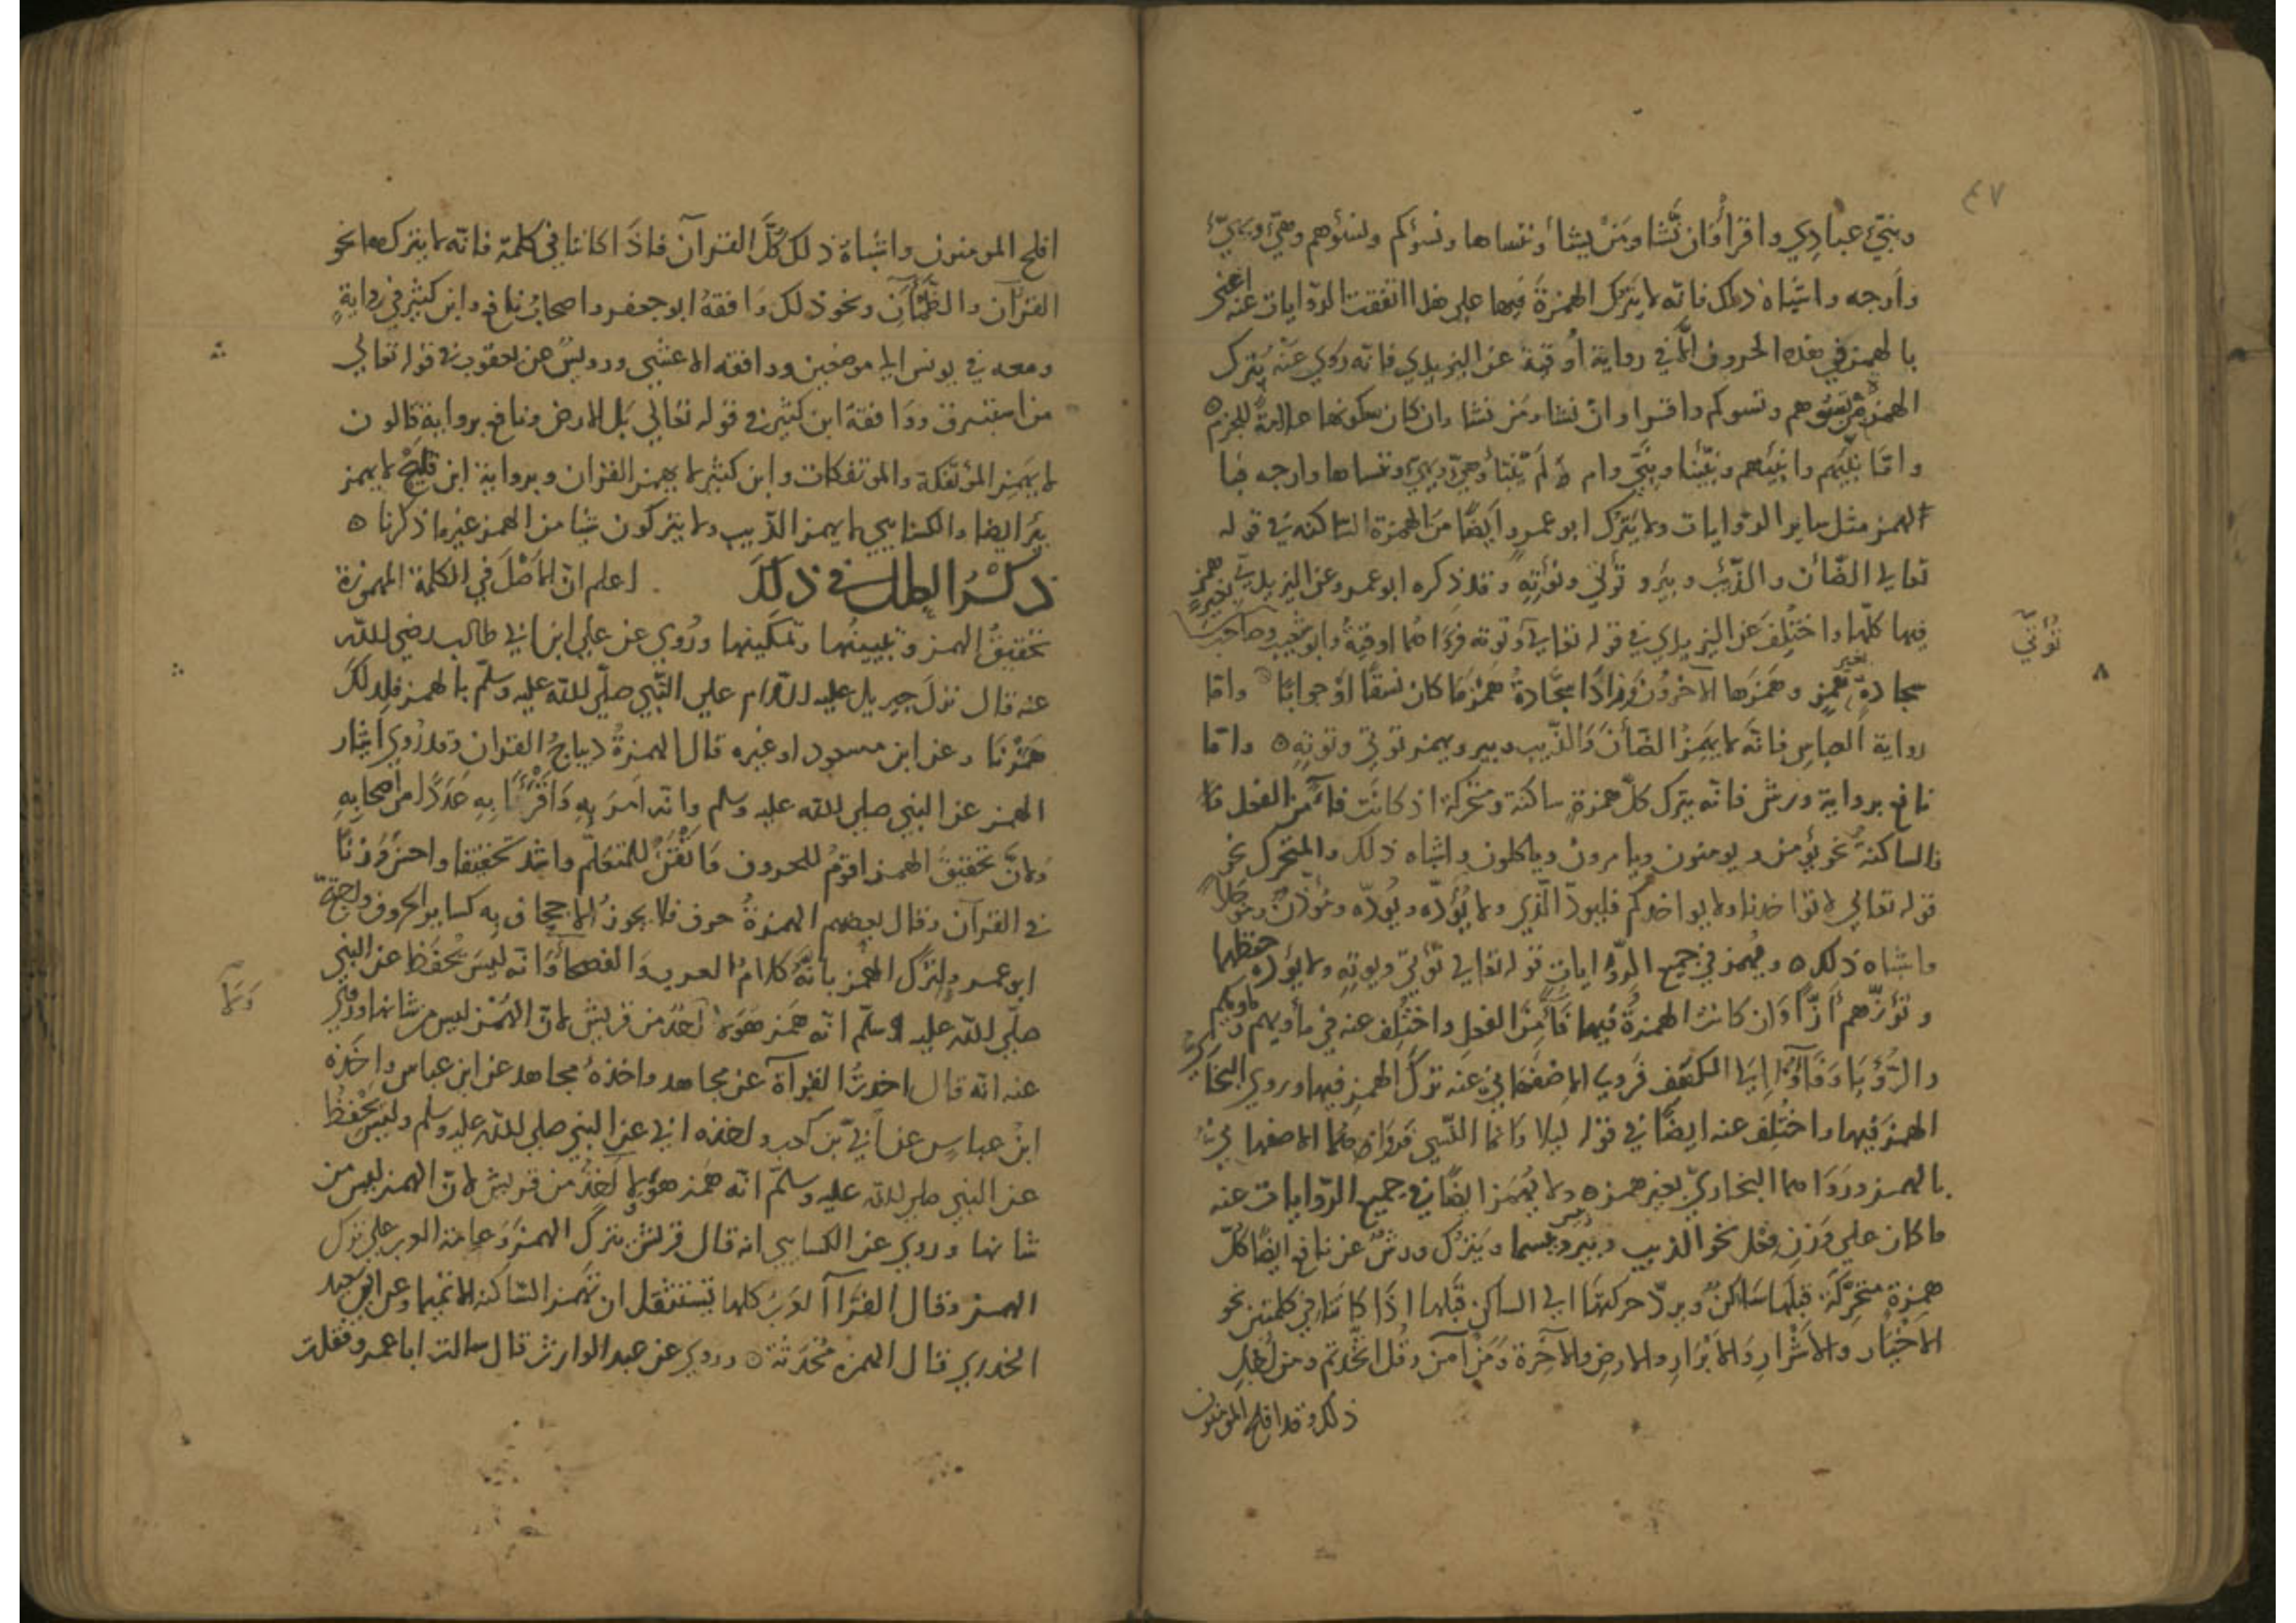 ٤٧
ونبّئ عبادِي واقرأ وَان نَّشا ومَنْ يشا أو ننساها وتسؤكم وتسُؤهم وهيّئ ويهيّئ
وأرجه واشباه ذلك فانه لا يَترك الهمزةَ فيها على هذا اتفقت الروايات عنه اعني
بالهمز في هذه الحروف الّا في رواية أوقيّة عن اليزيدي فانه رَوي عنْه يَترك
الهمزة من تسُؤهم وتسوكم واقرا وان نشا ومن نشا وان كان سكونها علامةً للجزم
وامّا نبّيهم وانبئهم ونبّئنا ونبّي وام لَم ينبّأ وهيّئ ويهيّئ وننساها وارجه فبا
الهمز مثل ساير الروايات ولا يَترك ابو عمرو ايضًا من الهمزة الساكنه في قوله
تعالى الضّأن والذّئب وبئر وتؤتي ونؤته وقد ذكره ابو عمرو عن اليزيدي بغير همز
فيها كلّها واختُلِفَ عن اليزيدي في قوله تعالى وتوته فرَواهما اوقيّةُ وابو شعيب وصاحب
تُؤتيّ
سجادةٍ بغير همزٍ وهَمَزها الآخرُون وزادَ سجَّادةُ هَمْزَ ما كان نسَقًا اوْ جوابًا وامّا
رواية العباسِ فانّه لا يَهمِزُ الضّأنَ وَالذّيب وبير ويهمز توتي وتوتِهِ وامّا
نافع برواية ورش فانّه يترك كلّ همزةٍ ساكنة ومتحركة اذ كانَت فاءً من الفعل فا
فالساكنة نحو يؤمن ويومنون ويامرون وياكلون واشباه ذلك والمتحرك نحو
قوله تعالى لا تؤاخذنا ولا يواخذكم فليودّ الّذي ولا يُؤدّه ويُودّه ومُؤذّنٌ ومؤجّلًا
واشباه ذلك ويهمز في جميع الرّوايات قوله تعالى تُؤتي ويوتِهِ ولا يؤده حفظهما
وتؤزّهم أزّا وَان كانت الهمزةُ فيها فَاءً منَ الفعلِ واختُلِف عنه في مأويهم وماويكم
والرُّؤيَا وَفَاوُوا الى الكهف فَروى الاصفهاني عنه تركَ الهمزِ فيها وروى البخاري
الهمزَ فيها واختُلِف عنه ايضًا في قوله ليلا وانما النّسي فرَواهما الاصفهاني
بالهمز ورَوَاهما البخاريّ بغير همز ولا يَهمز ايضًا في جميع الرّوايات عنه
ما كان على وَزنِ فعل نحو الذيب وبير وبيسما ويَترك ورشٌ عن نافع ايضًا كلّ
همزة متحرّكة قبلَها ساكنٌ ويردّ حركتها الى الساكن قبلها اذا كانتا في كلمتين نحو
الاخيَار والاشْرارِ وَالابْرَارِ والارضِ والآخرة ومَنْ آمنَ وقُل اتّخذتم ومن اجلِ
ذلك وقد افلح المؤمنون
افلح المومنون واشباه ذلك كُلَّ القرآن فاذَا كانتا في كلمة فانّه لا يترك همزها نحو
القرآن والظَّمْآن ونحو ذلك وَافقهُ ابو جعفر واصحابُ نافع وابن كثير في روايةٍ
ومعه في يونس الى موضعين ووافقه الاعشى ورويسٌ عن يعقوب في قوله تعالى
من استبرق ووَافقهُ ابن كثير في قوله تعالى بَل الارض ونافع بروايةِ قالون
لا يهَمِز المؤتفكة والموتفكات وابن كثير لا يهمز القران وبرواية ابن فليح لا يهمز
بئرَ ايضا والكسايي لا يهمز الذّيب ولا يتركون شيا من الهمز غير ما ذكرنا
ذكْرُ العلل في ذلك اعلم انّ الاصْلَ في الكلمة المهموزة
تحقيقُ الهمز وتبيينُها وتمكينها ورُوي عن علي ابن ابي طالب رضي الله
عنه قال نزلَ جبريل عليه السّلام على النّبي صلّى الله عليه وسلّم بالهمز فلذلك
هَمَزْنَا وعن ابن مسعود او غيره قال الهمزةُ ديباجُ القران وقد رُوي ايثار
الهمز عن النبي صلى الله عليه وسلم وانه امَرَ بِهِ وَاقْرَأَ بِهِ عَدَدًا من اصحابِهِ
ولانّ تحقيقَ الهمز اقومُ للحروف وَاتْقَنُ للمتعلّم واشد تحقيقا واحسَنُ وزنًا
في القرآن وقال بعضهم الهمزةُ حرف فلا يجوز الاجحاف بِه كساير الحروف ولحجة
ابو عمرو لترك الهمز بانّهُ كلامُ العرب وَالفصحاء وَانه ليسَ يُحفَظ عن النبي
صلّى الله عليه وسلّم انّه هَمز هؤلا اَحَدٌ من قريش لانّ الهَمْز ليس من شانها ورُوي
وَلَا
عنه انه قال اخذتُ القراءة عن مجاهد واخذهُ مجاهد عن ابن عباس واخذه
ابن عباس عن أبيّ بن كعب واخذه ابي عن النبي صلى الله عليه وسلم وليس يُحْفَظُ
عن النبي صلى الله عليه وسلّم انّه هَمز هؤلا اَحَدٌ من قريش لانّ الهمز ليس من
شانها وروي عن الكسايي انه قال قريش تترك الهمزَ وعامة العرب على ترك
الهمز وقال الفرّاء العرب كلها تستثقل ان تهمز السّاكنة الا تميما وعن ابي سعيد
الخدري قال الهمزة مُحْدَثَةٌ وروي عن عبد الوارث قال سالت ابا عمرو فقلت